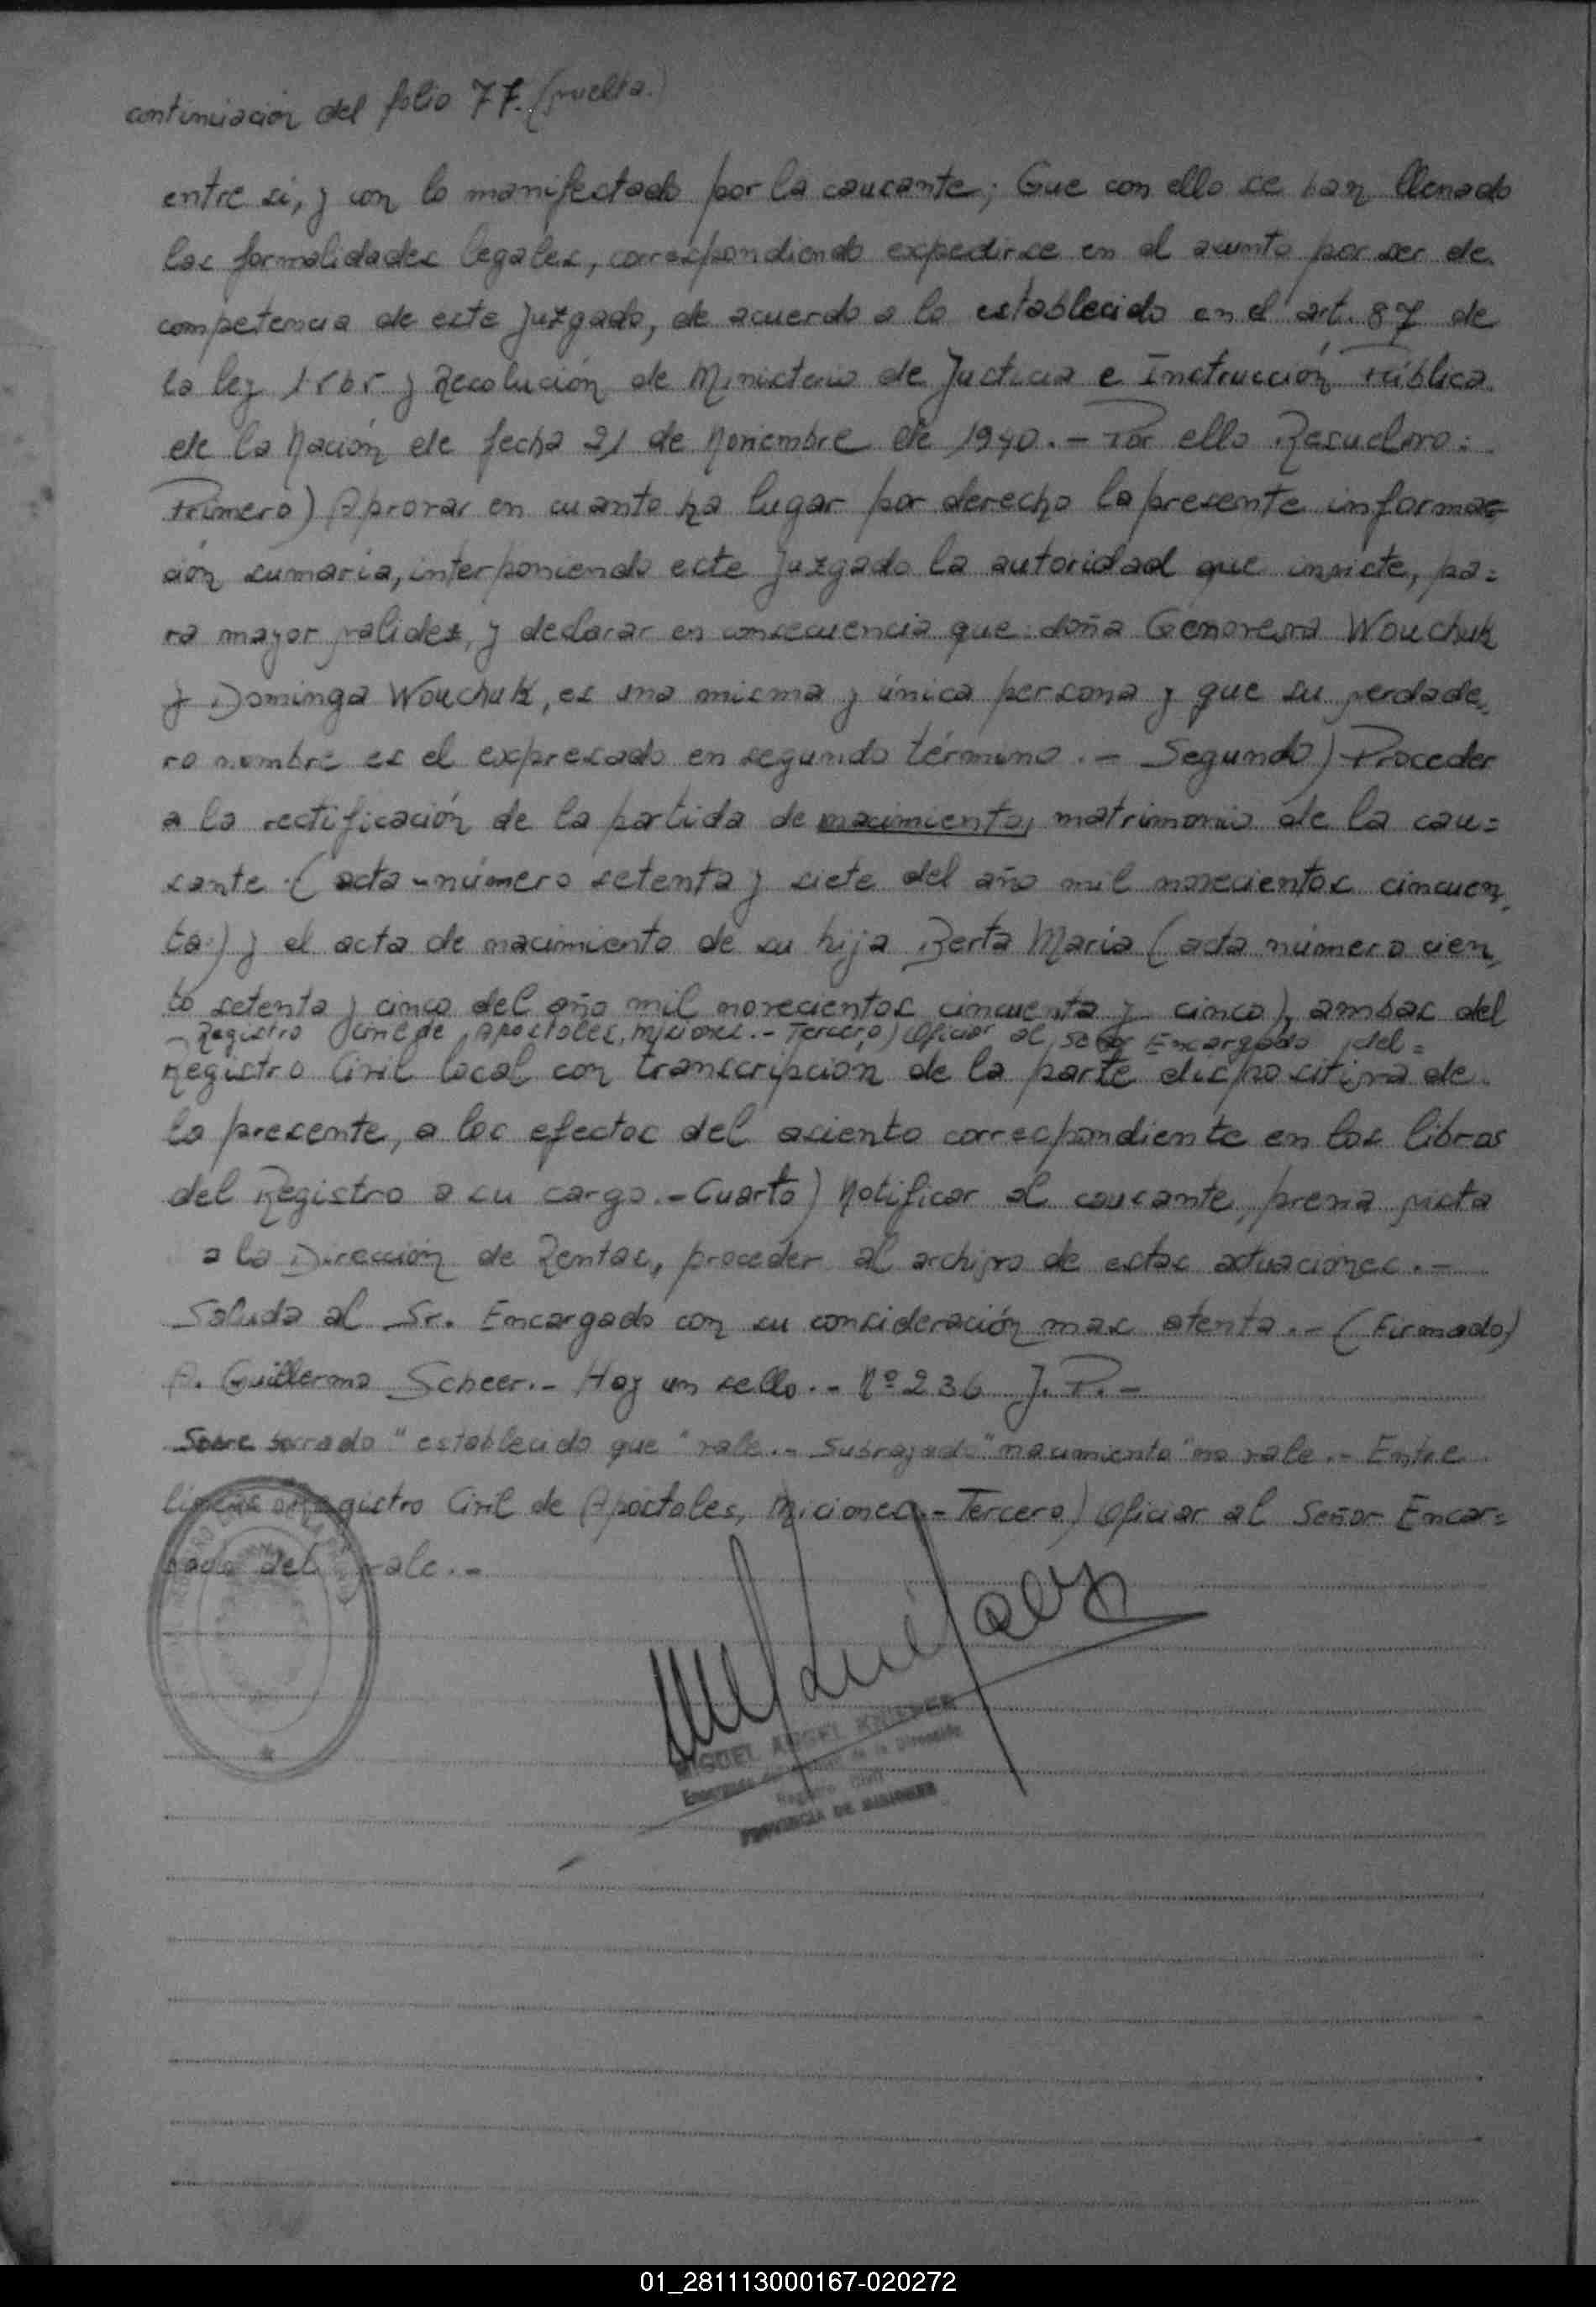 continuación del folio 77. (vuelta.)
entre si, y con lo manifestado por la causante; Que con ello se han llenado
las formalidades legales, correspondiendo expedirse en el asunto por ser de
competencia de este Juzgado, de acuerdo a lo establecido en el art. 87 de
la ley 1565 y Resolución de Ministerio de Justicia e Instrucción Pública
de la Nación de fecha 21 de Noviembre de 1940.- Por ello Resuelvo:
Primero) Aprovar en cuanto ha lugar por derecho la presente informac
ión sumaria, interponiendo este Juzgado la autoridad que inviste, pa=
ra mayor validez, y declarar en consecuencia que doña Genoveva Wouchuk
y Dominga Wouchuk, es una misma y única persona y que su verdade,
ro nombre es el expresado en segundo término.- Segundo) Proceder
a la rectificación de la partida de nacimiento, matrimonio de la cau=
sante (acta número setenta y siete del año mil novecientos cincuen,
ta) y el acta de nacimiento de su hija Berta María (acta número cien,
to setenta y cinco del año mil novecientos cincuenta y cinco), ambas del
Registro Civil de Apostoles, Misiones.- Tercero) Oficiar al Señor Encargado del=
Registro Civil local con transcripcion de la parte dispositiva de
la presente, a los efectos del asiento correspondiente en los libros
del Registro a su cargo.- Cuarto) Notificar al causante, previa vista
a la Dirección de Rentas, proceder al archivo de estas actuaciones.-
Saluda al Sr. Encargado con su consideración mas atenta.- (Firmado)
A. Guillermo Scheer.- Hay un sello.- Nº 236 J. P.-
Sobre borrado "establecido que" vale.- Subrayado "nacimiento" no vale.- Entre
lineas "Registro Civil de Apostoles, Misiones.- Tercero) Oficiar al Señor Encar=
gado del" vale.-
MIGUEL ANGEL
Encargado de la Dirección
Registro Civil
PROVINCIA DE MISIONES
01_281113000167-020272